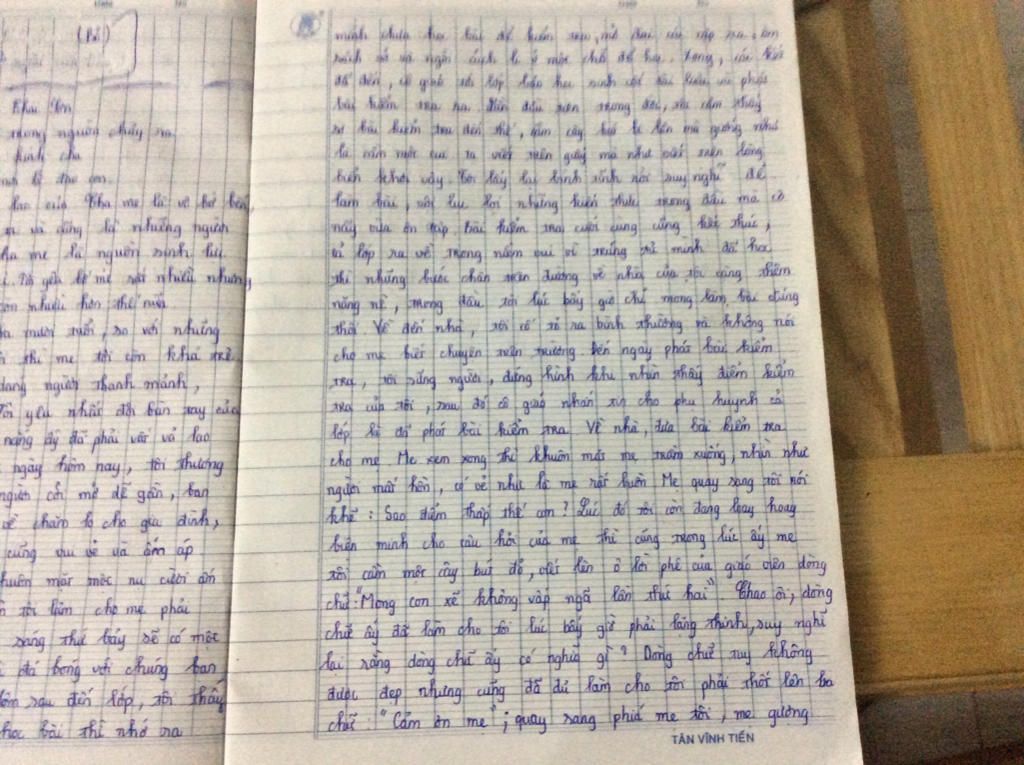 (Bố)
Khai bút
trong nguồn chảy ra
kính cha
mới là đạo con.
lao của Cha mẹ là vô bờ bến,
và cũng là những người
Cha mẹ là người sinh
Tôi yêu bố mẹ rất nhiều nhưng
nhiều hơn thế nữa
ba mươi tuổi, so với những
thì mẹ tôi còn khá trẻ
dáng người thanh mảnh,
Tôi yêu nhất đôi bàn tay của
nặng ấy đã phải vất vả lao
ngày hôm nay, tôi thương
người cởi mở dễ gần, ban
về chăm lo cho gia đình,
cũng vui vẻ và ấm áp
khuôn mặt một nụ cười ấm
tôi làm cho mẹ phải
sáng thứ bảy sẽ có một
đá bóng với chúng bạn
hôm sau đến lớp, tôi thấy
học bài thì nhớ ra
mình chưa học bài để kiểm tra, mở cặp ra, tìm
sách vở và ngồi ở một chỗ để học. Xong,
đã đến, cô giáo tới lớp bảo học sinh cất tài liệu và phát
bài kiểm tra ra. Lần đầu tiên trong đời, tôi cảm thấy
sợ bài kiểm tra đến thế, cầm cây bút bi lên mà gượng như
là nắm một cục tạ viết trên giấy mà như viết trên dòng
biển khơi vậy. Tôi lấy lại bình tĩnh nơi suy nghĩ để
làm bài, với lục lọi những kiến thức trong đầu mà có
mấy của ôn tập bài kiểm tra cuối cùng cũng kết thúc,
cả lớp ra về trong niềm vui vì trúng tủ mình đã học
thì những bước chân trên đường về nhà của tôi càng thêm
nặng nề, trong đầu tôi lúc bấy giờ chỉ mong làm bài đúng
thôi. Về đến nhà, tôi cố tỏ ra bình thường và không nói
cho mẹ biết chuyện trên trường. Đến ngày phát bài kiểm
tra, tôi sững người, đứng hình khi nhìn thấy điểm kiểm
tra của tôi, sau đó cô giáo nhắn tin cho phụ huynh cả
lớp là đã phát bài kiểm tra. Về nhà, đưa bài kiểm tra
cho mẹ. Mẹ xem xong thì khuôn mặt mẹ trầm xuống, nhìn như
người mất hồn, có vẻ như là mẹ rất buồn. Mẹ quay sang tôi nói
khẽ: Sao điểm thấp thế con? Lúc đó tôi còn đang loay hoay
biện minh cho câu hỏi của mẹ thì cũng trong lúc ấy mẹ
tôi cầm một cây bút đỏ, viết lên ô lời phê của giáo viên dòng
chữ: "Mong con xẽ không vấp ngã lần thứ hai". Chao ôi, dòng
chữ ấy đã làm cho tôi lúc bấy giờ phải lặng thinh, suy nghĩ
lại rằng dòng chữ ấy có nghĩa gì? Dòng chữ tuy không
được đẹp nhưng cũng đã đủ làm cho tôi phải thốt lên ba
chữ: "Cảm ơn mẹ"; quay sang phía mẹ tôi, mẹ gượng
TÂN VĨNH TIẾN